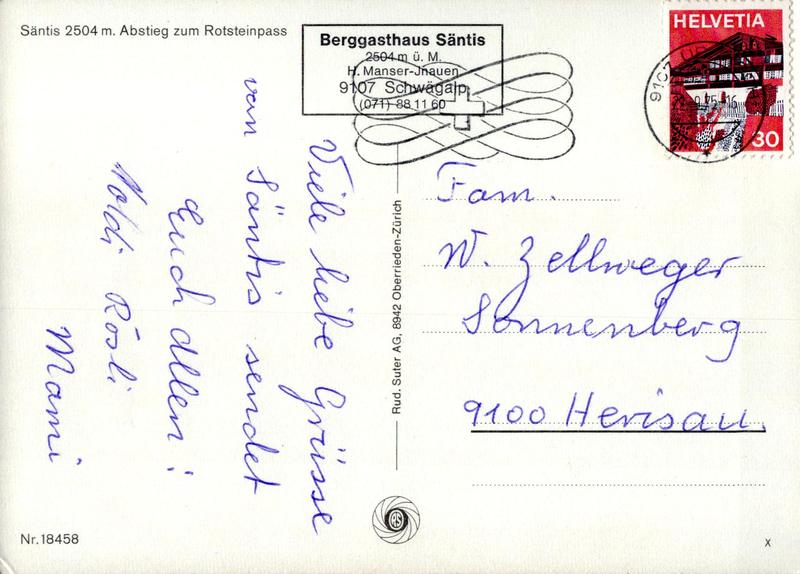 Säntis 2504 m. Abstieg zum Rotsteinpass
Berggasthaus Säntis
2504 m ü. M.
H. Manser-Jnauen
9107 Schwägalp
(071) 88 11 60
HELVETIA
30
9107
Viele liebe Grüsse
von Säntis sendet
Euch allen:
Noldi Rösli
Mami
Fam.
W. Zellweger
Sonnenberg
9100 Herisau.
Rud. Suter AG, 8942 Oberrieden-Zürich
RS
Nr. 18458
X